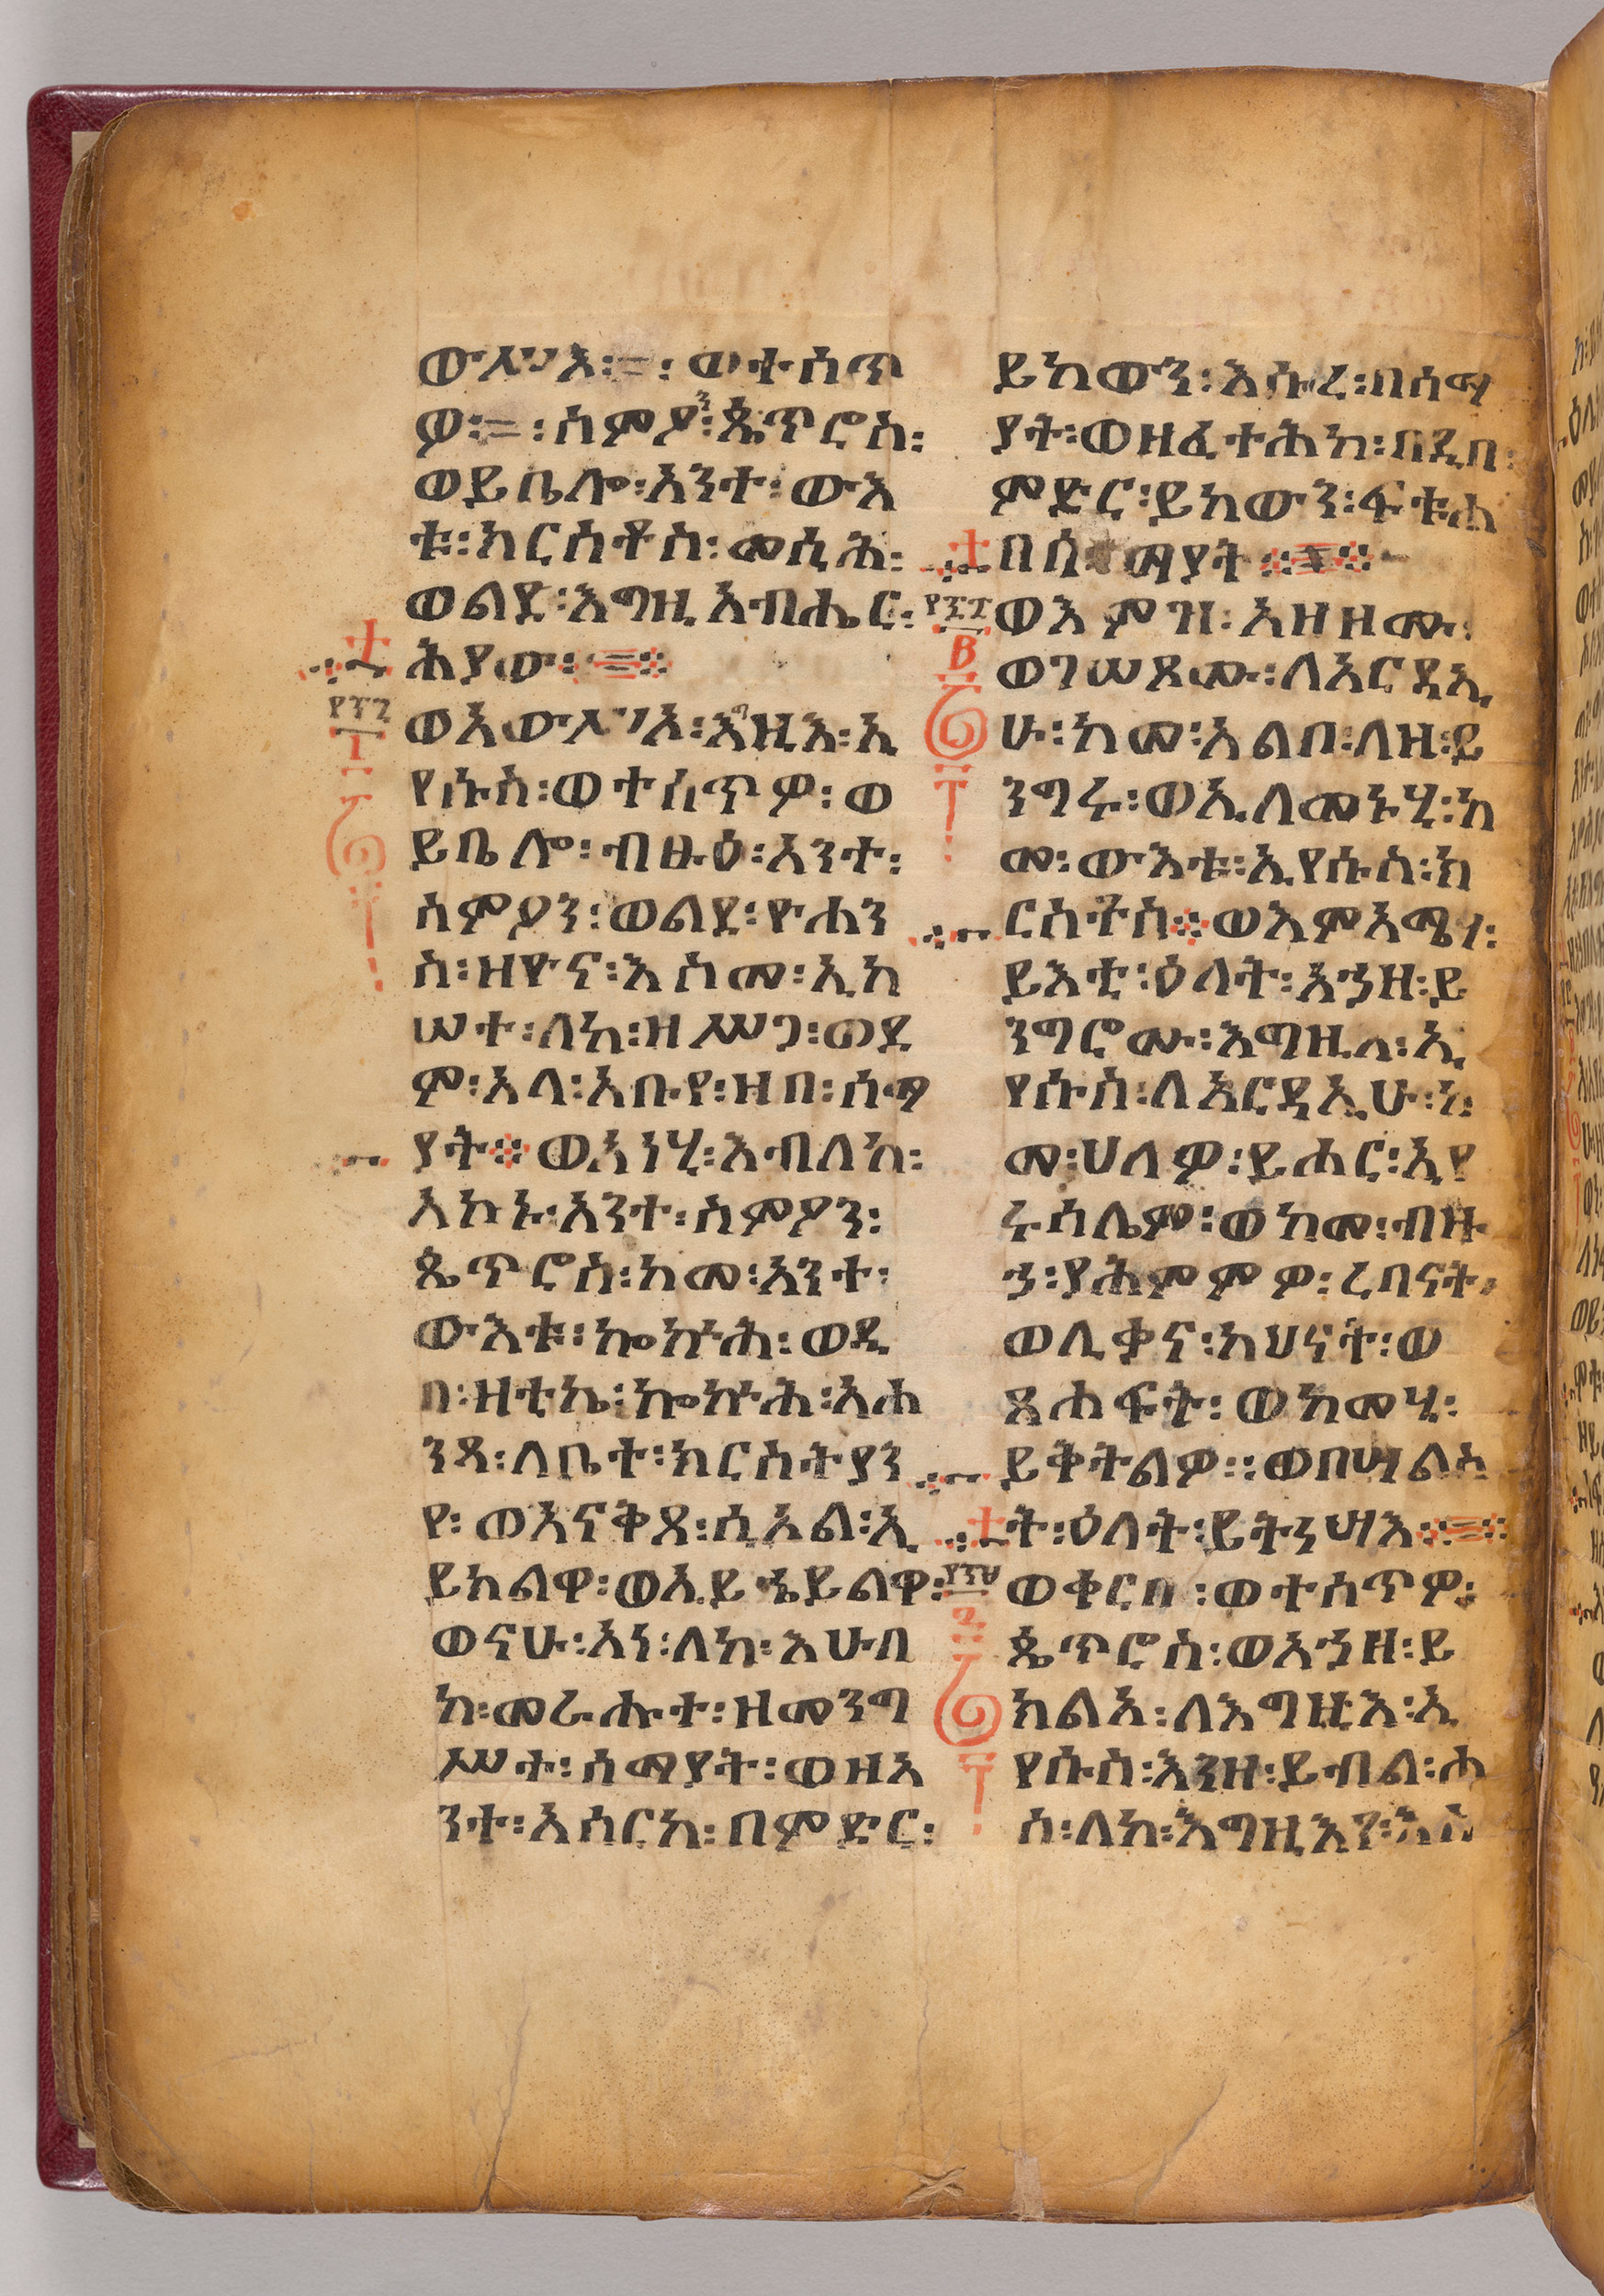 ውሥአ፡=፡ወተሰጥ
ዎ፡=፡ስምዖን፡ጴጥሮስ፡
ወይቤሎ፡አንተ፡ውእ
ቱ፡ክርስቶስ፡መሲሕ፡
ወልደ፡እግዚአብሔር፡
ሕያው፡=
ወአውሥአ፡እግዚእ፡ኢ
የሱስ፡ወተሰጥዎ፡ወ
ይቤሎ፡ብፁዕ፡አንተ፡
ስምዖን፡ወልደ፡ዮሐን
ስ፡ዘዮና፡እስመ፡ኢከ
ሠተ፡ለከ፡ዘሥጋ፡ወደ
ም፡አላ፡አቡየ፡ዘበ፡ሰማ
ያት፨ወአነሂ፡እብለከ፡
አኮኑ፡አንተ፡ስምዖን፡
ጴጥሮስ፡ከመ፡አንተ፡
ውእቱ፡ኰኵሕ፡ወዲ
በ፡ዛቲኬ፡ኰኵሕ፡አሐ
ንጻ፡ለቤተ፡ክርስትያን
የ፡ወአናቅጸ፡ሲኦል፡ኢ
ይክልዋ፡ወኢይኄይልዋ፡
ወናሁ፡አነ፡ለከ፡እሁበ
ከ፡መራሑተ፡ዘመንግ
ሥተ፡ሰማያት፡ወዘአ
ንተ፡አሰርከ፡በምድር፡
ይከውን፡እሱረ፡በሰማ
ያት፡ወዘፈተሕከ፡በዲበ፡
ምድር፡ይከውን፡ፍቱሐ
በሰማያት፨=፨
ወእምዝ፡አዘዘሙ፡
ወገሠጾሙ፡ለአርዳኢ
ሁ፡ከመ፡አልቦ፡ለዘ፡ይ
ንግሩ፡ወኢለመኑሂ፡ከ
መ፡ውእቱ፡ኢየሱስ፡ክ
ርስቶስ፨ወእምአሜሃ፡
ይእቲ፡ዕለት፡አኀዘ፡ይ
ንግሮሙ፡እግዚእ፡ኢ
የሱስ፡ለአርዳኢሁ፡ከ
መ፡ሀለዎ፡ይሐር፡ኢየ
ሩሳሌም፡ወከመ፡ብዙ
ኀ፡ያሕምምዎ፡ረበናት፡
ወሊቃና፡ካህናት፡ወ
ጸሐፍት፡ወከመሂ፡
ይቅትልዎ፡፡ወበሣልስ
ት፡ዕለት፡ይትነሣእ፨=፨
ወቀርበ፡ወተሰጥዎ፡
ጴጥሮስ፡ወአኀዘ፡ይ
ክልኦ፡ለእግዚእ፡ኢ
የሱስ፡እንዘ፡ይብል፡ሐ
ሰ፡ለከ፡እግዚእየ፡